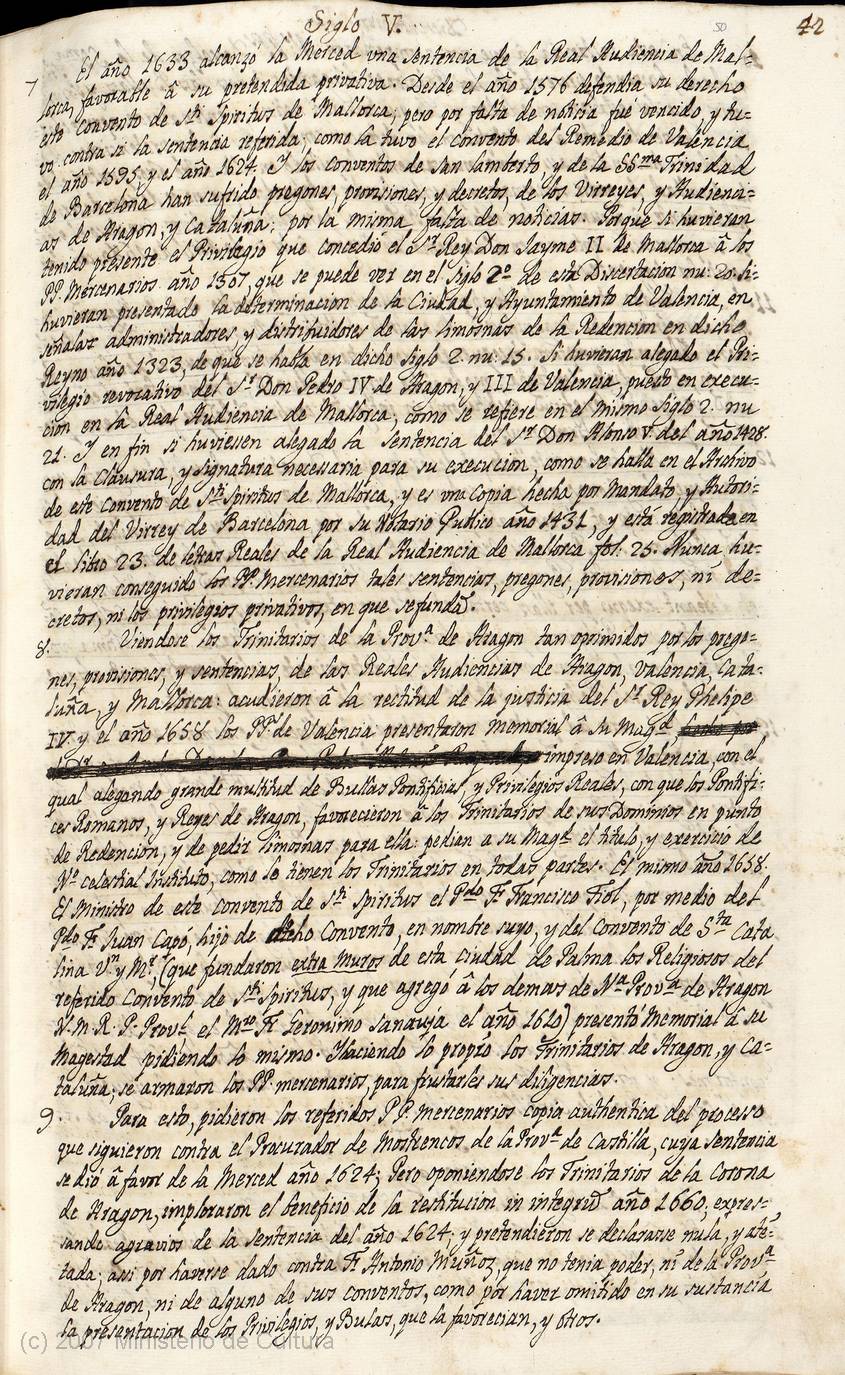 Siglo V.
50
42
7 El año 1633 alcanzó la Merced vna sentencia de la Real Audiencia de Mal-
lorca, favorable â su pretendida privativa. Desde el año 1576 defendia su derecho
este Convento de Sti Spiritus de Mallorca; pero por falta de noticia fué vencido, y tu-
vo contra si la sentencia referida; como la tuvo el convento del Remedio de Valencia
el año 1595, y el año 1624. Y los conventos de san lamberto, y de la SSma Trinidad
de Barcelona han sufrido pregones, provisiones, y decretos, de los Virreyes, y Audienci-
as de Aragon, y Cataluña; por la misma falta de noticias. Porque si huvieran
tenido presente el Privilegio que concedió el Sr Rey Don Jayme II de Mallorca â los
PP. Mercenarios año 1307, que se puede ver en el Siglo 2o de esta Discertacion nu. 20. Si-
huvieran presentado la determinacion de la Ciudad, y Ayuntamiento de Valencia, en
señalar administradores, y distribuidores de las limosnas de la Redencion en dicho
Reyno año 1323, de que se habla en dicho Siglo 2. nu. 15. Si huvieran alegado el Pri-
vilegio revocativo del Sr Don Pedro IV de Aragon, y III de Valencia, puesto en execu-
cion en la Real Audiencia de Mallorca, como se refiere en el mismo Siglo 2. nu
21. Y en fin si huviessen alegado la sentencia del Sr Don Alonso V. del año 1428.
con la Clausura, y signatura necesaria para su execucion, como se halla en el Archivo
de este Convento de Sti Spiritus de Mallorca, y es vna Copia hecha por Mandato, y Autori-
dad del Virrey de Barcelona por su Notario Publico año 1431, y está registrada en
el libro 23. de letras Reales de la Real Audiencia de Mallorca fol. 25. Nunca hu-
vieran conseguido los PP. Mercenarios tales sentencias, pregones, provisiones, ni de-
cretos, ni los privilegios privativos, en que se fundã.
8. Viendose los Trinitarios de la Prova de Aragon tan oprimidos por los prego-
nes, provisiones, y sentencias, de las Reales Audiencias de Aragon, Valencia, Cata-
luña, y Mallorca: acudieron â la rectitud de la justicia del Sr Rey Phelipe
IV. y el año 1658 los PPs de Valencia presentaron Memorial â su Magd
impreso en Valencia, con el
qual alegando grande multitud de Bullas Pontificias, y Privilegios Reales, con que los Pontifi-
ces Romanos, y Reyes de Aragon, favorecieron â los Trinitarios de sus Dominios en punto
de Redencion, y de pedir limosnas para ella: pedian a su Magd el titulo, y exercicio de
No celestial Instituto, como lo tienen los Trinitarios en todas partes. El mismo año 1658.
El Ministro de este convento de Sti Spiritus el Pdo Fr. Francisco Fiol, por medio del
Pdo Fr Juan Capó, hijo de dicho Convento, en nombre suyo, y del Convento de Sta Cata
lina Vn y Mr, (que fundaron extra Muros de esta ciudad de Palma los Religiosos del
referido Convento de Sti Spiritus, y que agregó â los demas de Na Prova de Aragon
N. M. R. P. Provl el Mro Fr Geronimo Sanauja el año 1610) presentó Memorial â su
Magestad pidiendo lo mismo. Y haciendo lo propio los Trinitarios de Aragon, y Ca-
taluña; se armaron los PP. mercenarios, para frustarles sus diligencias.
9. Para esto, pidieron los referidos PP. Mercenarios copia authentica del processo
que siguieron contra el Procurador de Mostrencos de la Prova de Castilla, cuya sentencia
se dió â favor de la Merced año 1624; Pero oponiendose los Trinitarios de la Corona
de Aragon, imploraron el beneficio de la restitucion in integrũ año 1660; expres-
sando agravios de la sentencia del año 1624; y pretendieron se declarasse nula, y atẽ-
tada; assi por haverse dado contra Fr Antonio Muñoz, que no tenia poder, ni de la Prova
de Aragon, ni de alguno de sus conventos, como por haver omitido en su sustancia
la presentacion de los Privilegios, y Bulas, que la favorecian, y otros.
(c) 2007 Ministerio de Cultura